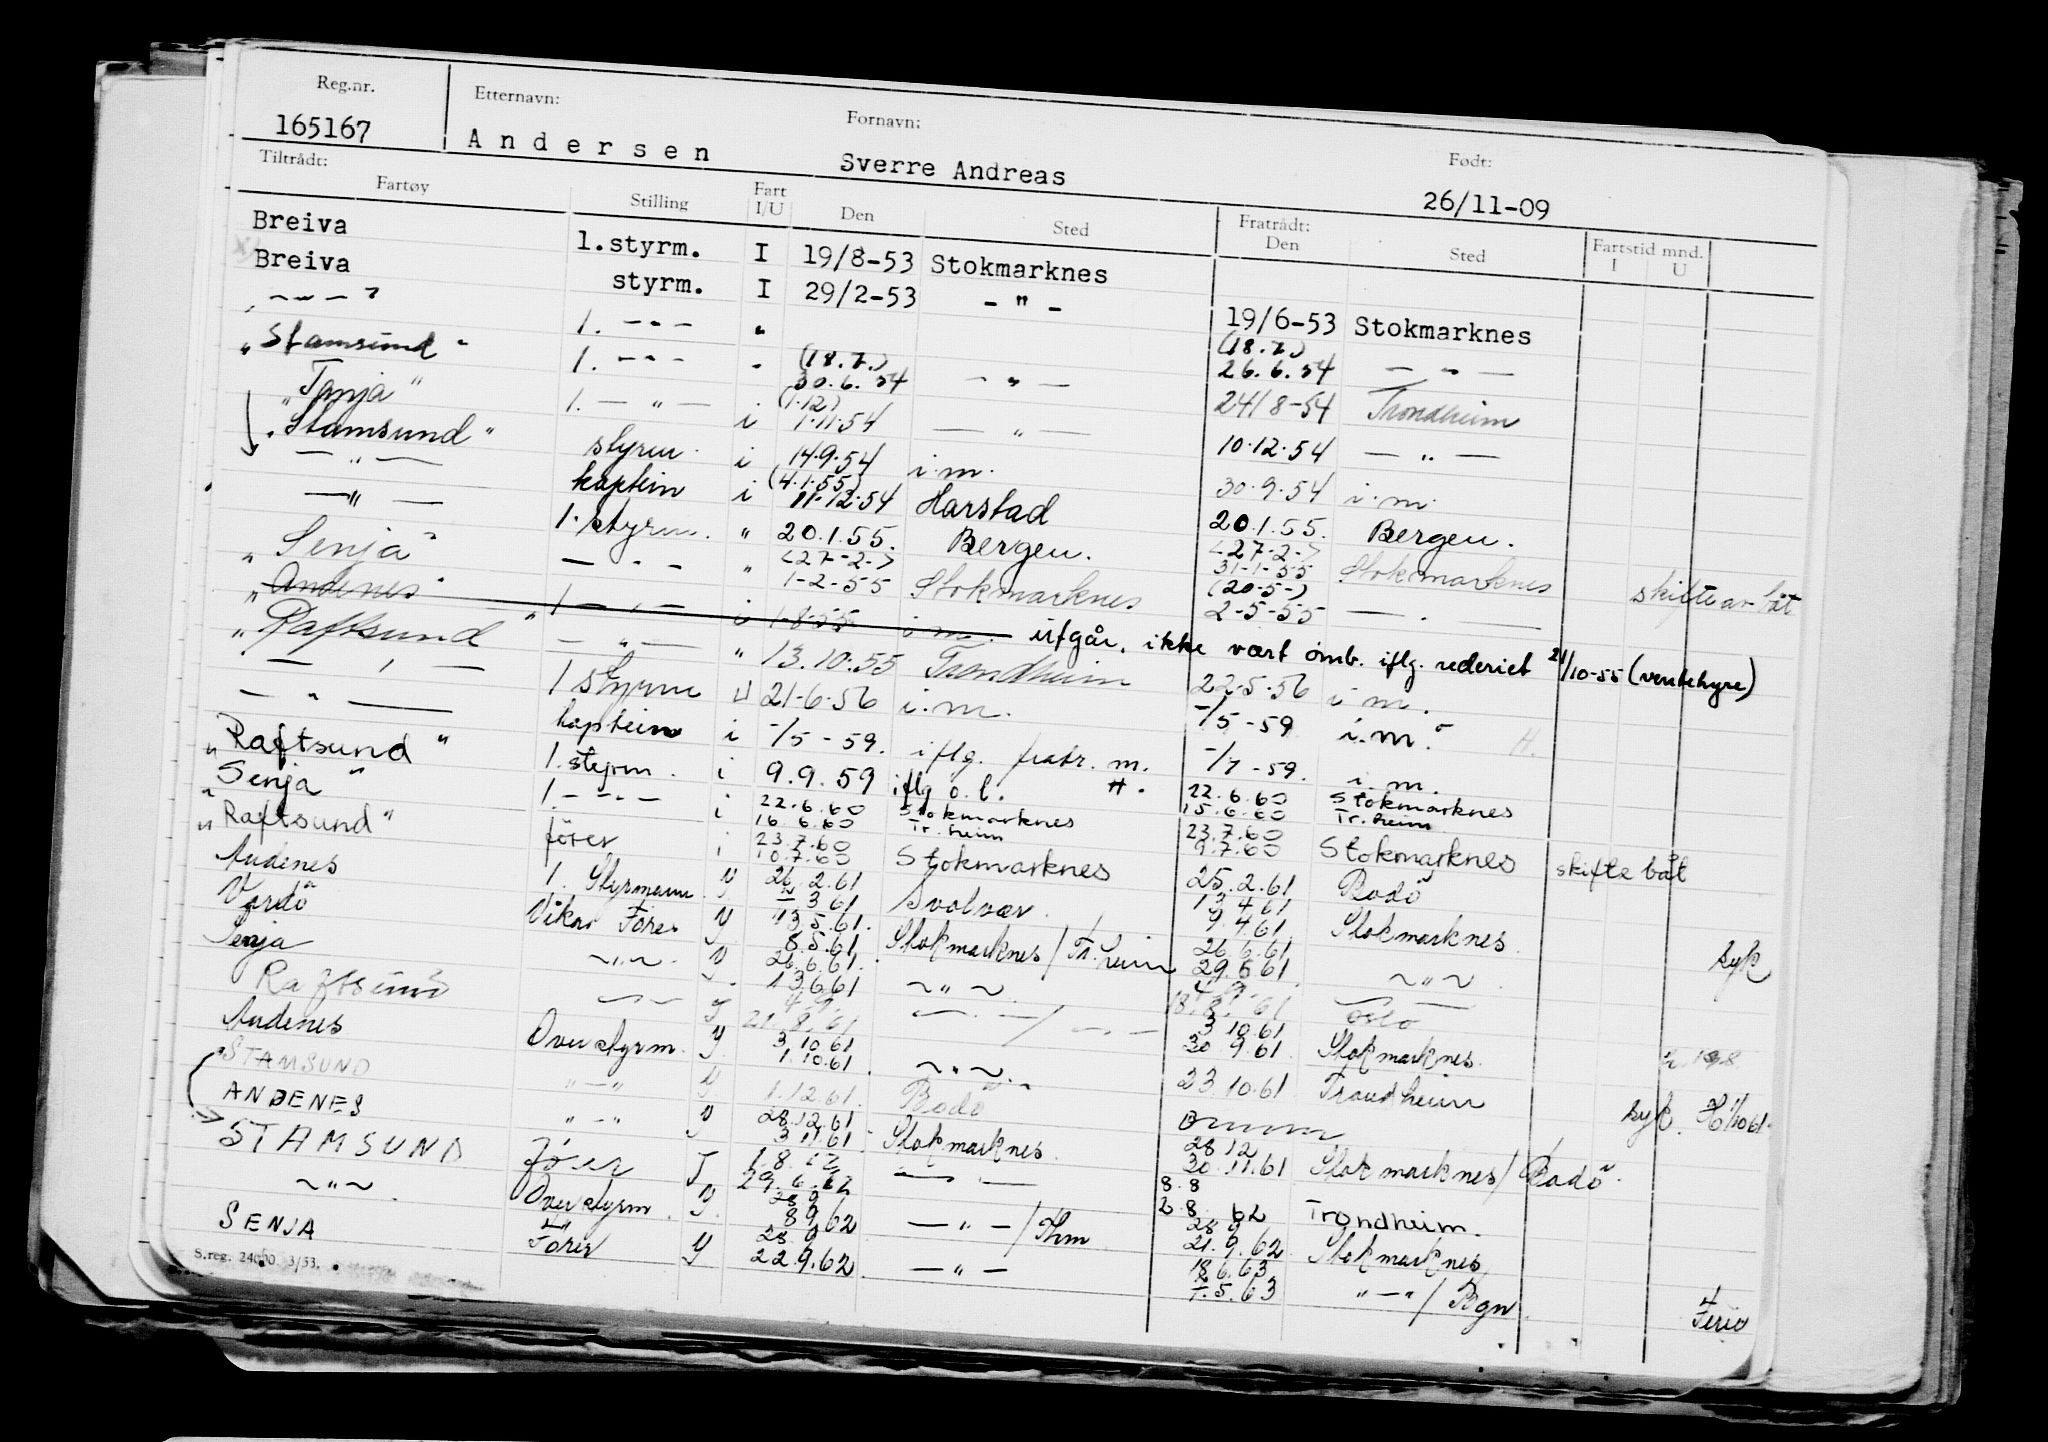 Reg.nr. Etternavn: Fornavn: Født:
165167 Andersen Sverre Andreas 26/11-09
Tiltrådt: Fratrådt:
Fartøy Stilling Fart I/U Den Sted Den Sted Fartstid mnd. I U
Breiva 1.styrm. I 19/8-53 Stokmarknes
Breiva styrm. I 29/2-53 - " - 19/6-53 Stokmarknes
— " — 1. — " — " (18.7.) 26.6.54 — " —
"Stamsund" 1. — " — " (18.7.) 30.6.54 — " — 24/8-54 Trondheim
"Tanja" 1. — " — i (1.12) 1.11.54 — " — 10.12.54 — " —
"Stamsund" styrm. i 14.9.54 i.m. 30.9.54 i.m.
— " — kaptein i (4.1.55) 11.12.54 Harstad 20.1.55. Bergen.
— " — 1. styrm. " 20.1.55. Bergen. (27-2-) 31-1-55 Stokmarknes skifte av båt
"Senja" — " — " (27-2-) 1-2-55 Stokmarknes (20-5-) 2-5-55 — " —
"Andenes" 1 — " — i 1-8-55 i m. utgår, ikke vært omb. iflg. rederiet 21/10-55 (ventehyre)
"Raftsund" — " — " 13.10.55 Trondheim 22.5.56 i m.
— " — 1 styrm U 21-6-56 i.m. -/5-59 i.m. H.
— " — kaptein i -/5-59. iflg. fratr. m. -/7-59. i.m.
"Raftsund" 1. styrm. i 9.9.59 iflg o.l. H. 22.6.60 15.6.60 Stokmarknes Tr.heim
"Senja" 1. — " — i 22.6.60 16.6.60 Stokmarknes Tr.heim 23.7.60 9.7.60 Stokmarknes skifte båt
"Raftsund" fører i 23.7.60 10.7.60 Stokmarknes 25.2.61 Bodö
Andenes 1. Styrmann 26.2.61 3 61 Svolvær. 13 4 61 9.4.61 Stokmarknes. syk
Vardö Vikar Fører 13.5.61. 8.5.61 Stokmarknes/Tr.heim 26.6.61 29.5.61 ~ " ~
Senja ~ " ~ 26.6.61. 13.6.61 ~ " ~ 18.8.61 Oslo
Raftsund — " — 21.8.61 — " — / — " — 3 10.61 30 9.61 Stokmarknes.
Andenes Overstyrm. 3.10.61 1.10.61 ~ " ~ 23.10.61 Trondheim syk.
"STAMSUND " — " 1.12.61. Bodö
ANDENES " — " 28.12.61 3 11.61 Stokmarknes. 28 12 30.11.61 Stokmarknes/Bodö.
STAMSUND fører I 1.8.62 29.6.62 — " — 8.8 2.8.62 Trondheim.
~ " ~ Overstyrm. 28.9 8 9.62 — " — /Thm 28 9 21.9.62 Stokmarknes
SENJA Fører 28.9 22.9.62 — " — 18.6.63 7.5.63 " — " / Bgn. Ferie
S.reg. 3/53.